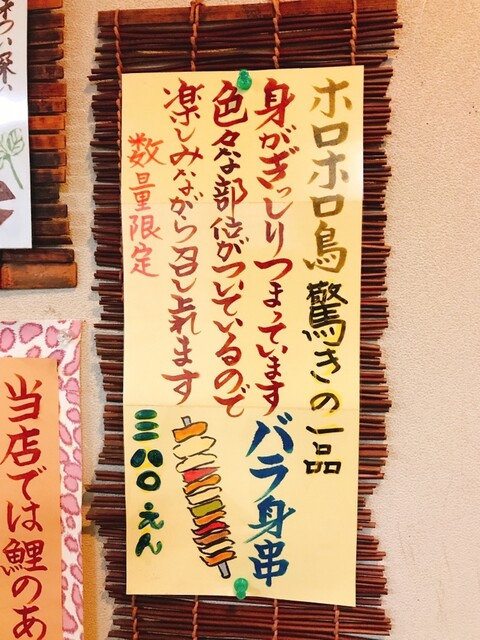 ホロホロ鳥驚きの一品
身がぎっしりつまっています
色々な部位がついているので
楽しみながら召し上れます
数量限定
バラ身串
三八〇えん
当店では鯉のあ